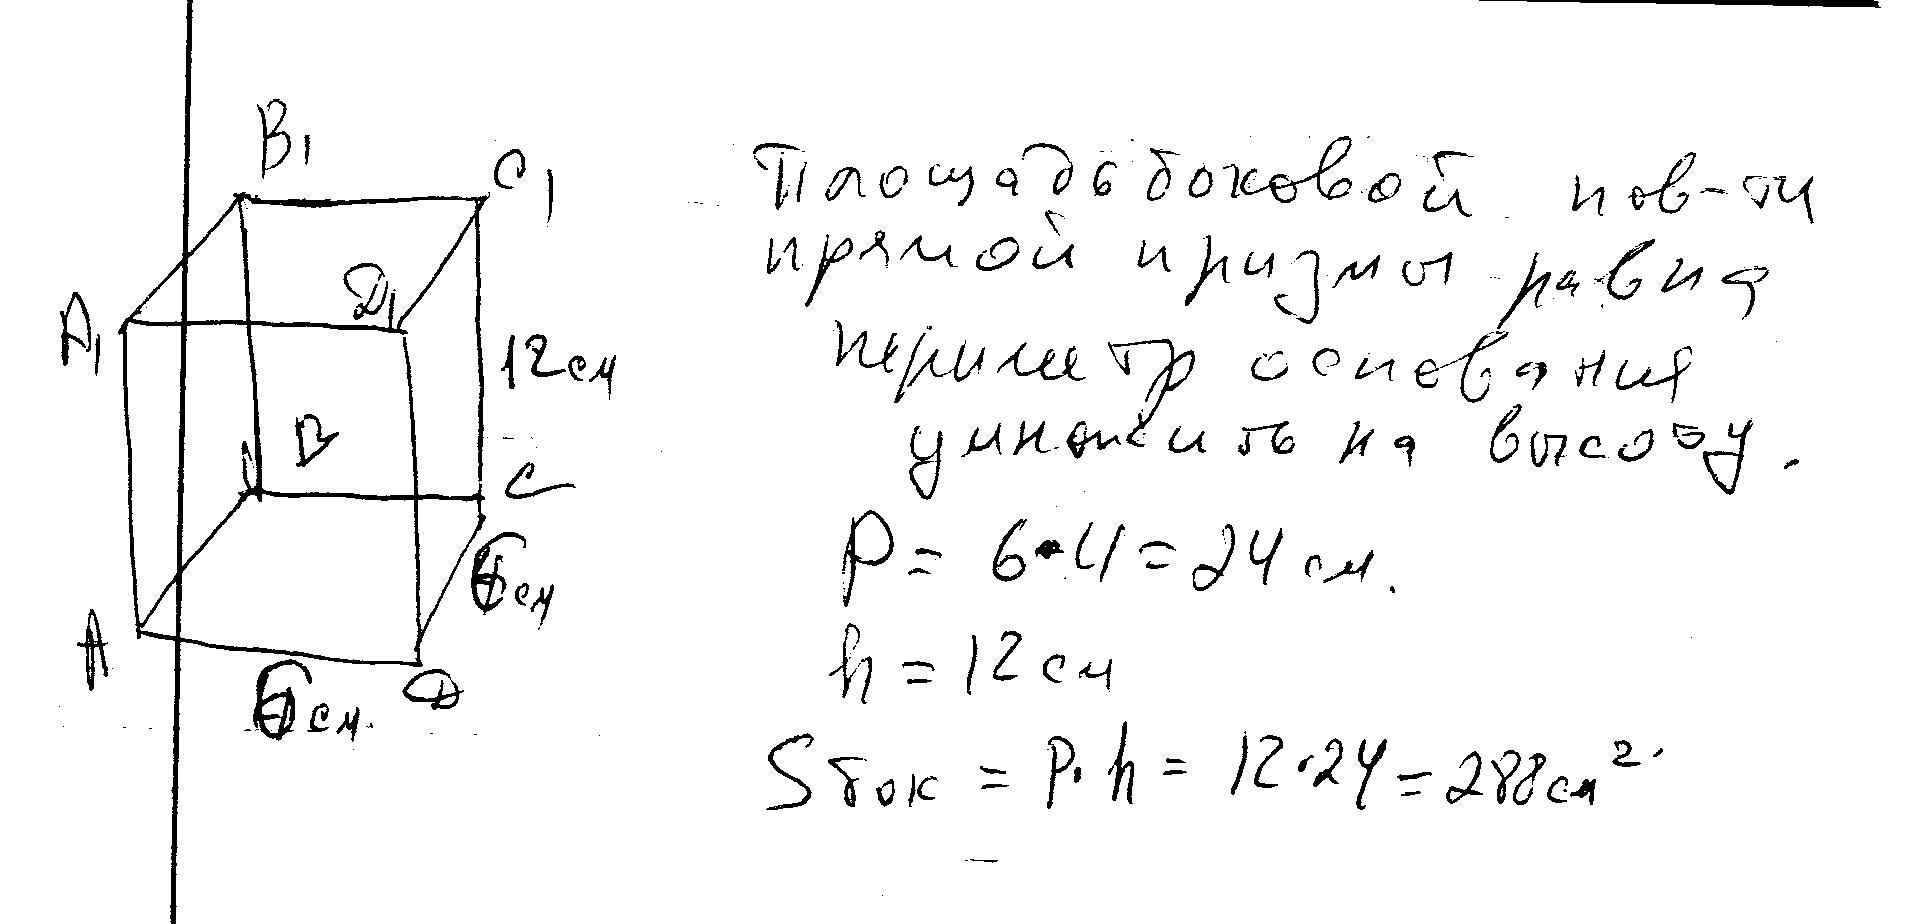 B₁
C₁
A₁
D₁
12см
B
C
6см
A
D
6см.
Площадь боковой пов-ти
прямой призмы равна
периметр основания
умножить на высоту.
P = 6·4 = 24 см.
h = 12 см
Sбок = P·h = 12·24 = 288см²